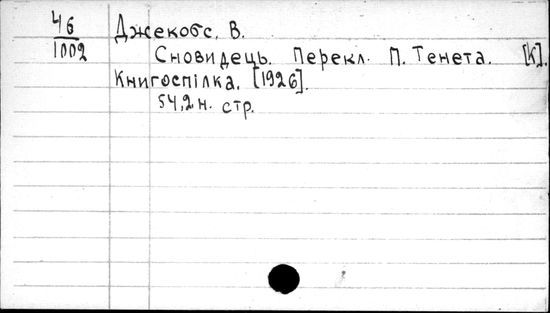 46
1002
Джекобс, В.
Сновидець. Перекл. П. Тенета. [К].
Книгоспілка, [1926].
54,2н. стр.